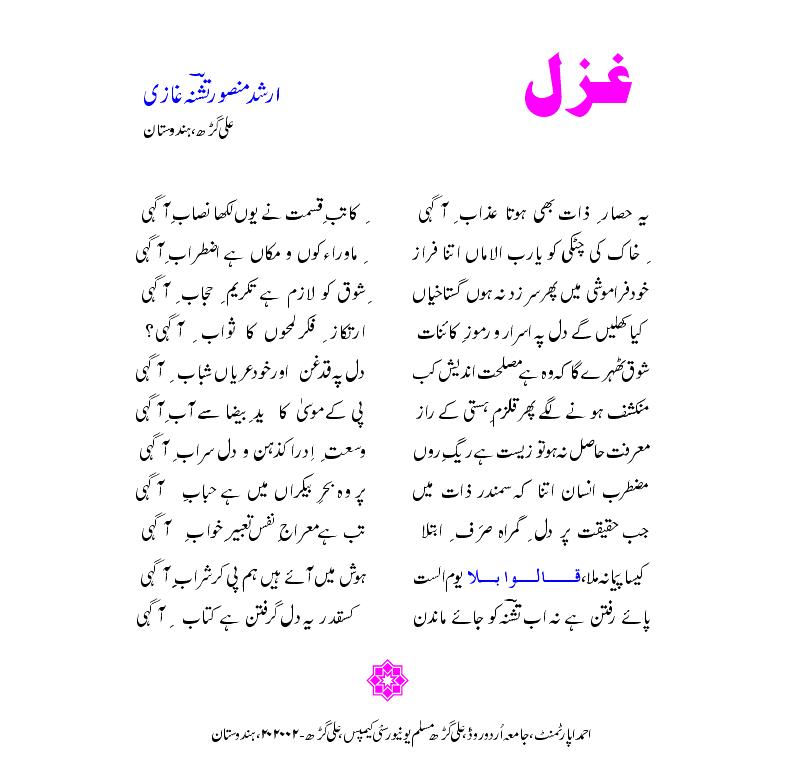 غزل
ارشد منصور تشنہؔ غازی
علی گڑھ، ہندوستان
یہ حصارِ ذات بھی ہوتا عذابِ آگہی کاتبِ قسمت نے یوں لکھا نصابِ آگہی
خاک کی چٹکی کو یارب الاماں اتنا فراز ماوراء کون و مکاں ہے اضطرابِ آگہی
خود فراموشی میں پھر سرزد نہ ہوں گستاخیاں شوق کو لازم ہے تکریمِ حجابِ آگہی
کیا کھلیں گے دل پہ اسرار و رموزِ کائنات ارتکازِ فکر لمحوں کا ثوابِ آگہی؟
شوق ٹھہرے گا کہ وہ ہے مصلحت اندیش کب دل پہ قدغن اور خود عریاں شبابِ آگہی
منکشف ہونے لگے پھر قلزمِ ہستی کے راز پی کے موسیٰ کا یدِ بیضا سے آبِ آگہی
معرفت حاصل نہ ہو تو زیست ہے ریگِ رواں وسعتِ اِدراک ذہن و دل سرابِ آگہی
مضطرب انسان اتنا کہ سمندر ذات میں پر وہ بحرِ بیکراں میں ہے حبابِ آگہی
جب حقیقت پر دلِ گمراہ صَرفِ ابتلا تب ہے معراجِ نفس تعبیرِ خوابِ آگہی
کیسا پیمانہ ملا، قالوا بلا یوم الست ہوش میں آئے ہیں ہم پی کر شرابِ آگہی
پائے رفتن ہے نہ اب تشنہؔ کو جائے ماندن کسقدر یہ دل گرفتن ہے کتابِ آگہی
احمد اپارٹمنٹ، جامعہ اُردو روڈ، علی گڑھ مسلم یونیورسٹی کیمپس، علی گڑھ-۲۰۲۰۰۲، ہندوستان